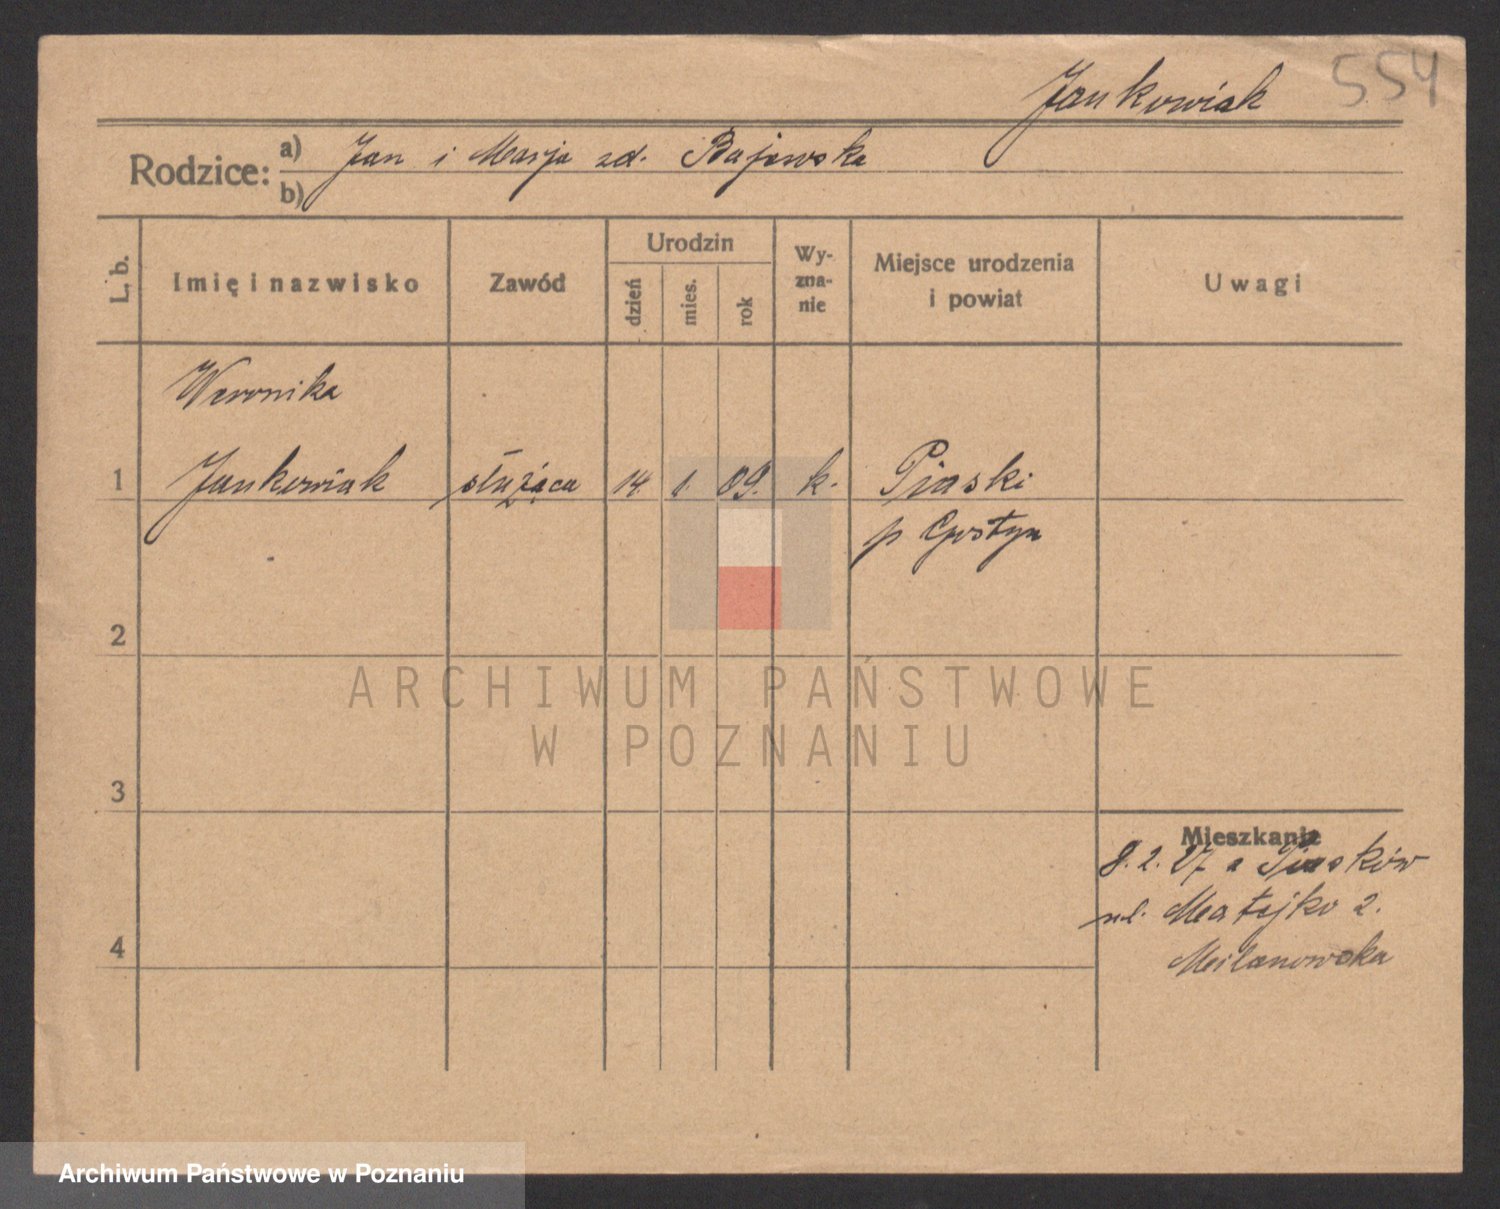 Jankowiak 554
Rodzice:
a) Jan i Marja zd. Bajewska
b)
L. b.
Imię i nazwisko
Zawód
Urodzin
dzień
mies.
rok
Wy-
zna-
nie
Miejsce urodzenia
i powiat
Uwagi
Weronika
1 Jankowiak służąca 14. 1. 09. k. Piaski
p Gostyn
2
3
4
Mieszkanie
8. 2. 27 z Piasków
ul. Matejko 2.
Milanowska
ARCHIWUM PAŃSTWOWE
W POZNANIU
Archiwum Państwowe w Poznaniu